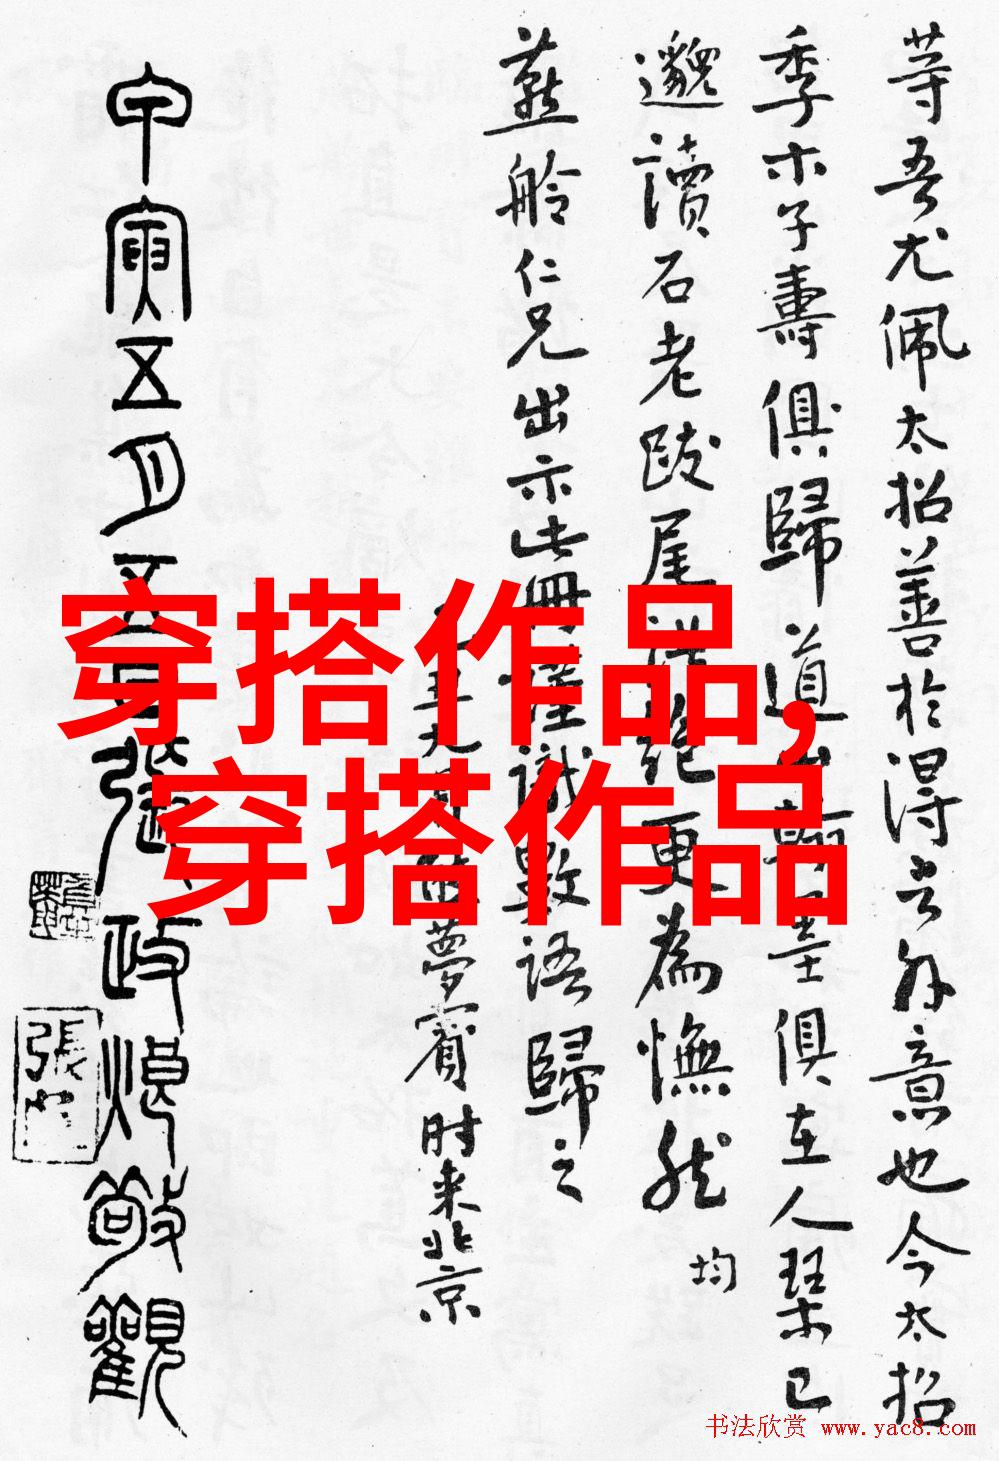 荨吾尤佩太招善於得言外意也今太招
季木子壽俱歸道山翰墨俱在人琴已
邈讀石老跋尾 絕更為憮然 均
燕舲仁兄出示此冊 識數語歸之
五九 夢賓时来北京
甲寅五月五日張政烺敬觀
張
穿搭作品,
穿搭作品
书法欣赏 www.yac8.com